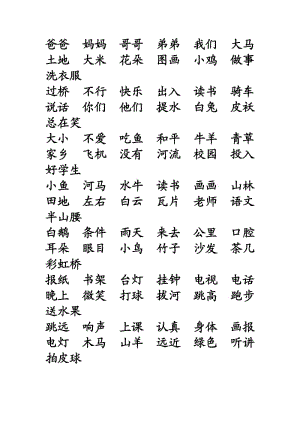 爸爸 妈妈 哥哥 弟弟 我们 大马
土地 大米 花朵 图画 小鸡 做事
洗衣服
过桥 不行 快乐 出入 读书 骑车
说话 你们 他们 提水 白兔 皮袄
总在笑
大小 不爱 吃鱼 和平 牛羊 青草
家乡 飞机 没有 河流 校园 投入
好学生
小鱼 河马 水牛 读书 画画 山林
田地 左右 白云 瓦片 老师 语文
半山腰
白鹅 条件 雨天 来去 公里 口腔
耳朵 眼目 小鸟 竹子 沙发 茶几
彩虹桥
报纸 书架 台灯 挂钟 电视 电话
晚上 微笑 打球 拔河 跳高 跑步
送水果
跳远 响声 上课 认真 身体 画报
电灯 木马 山羊 远近 绿色 听讲
拍皮球